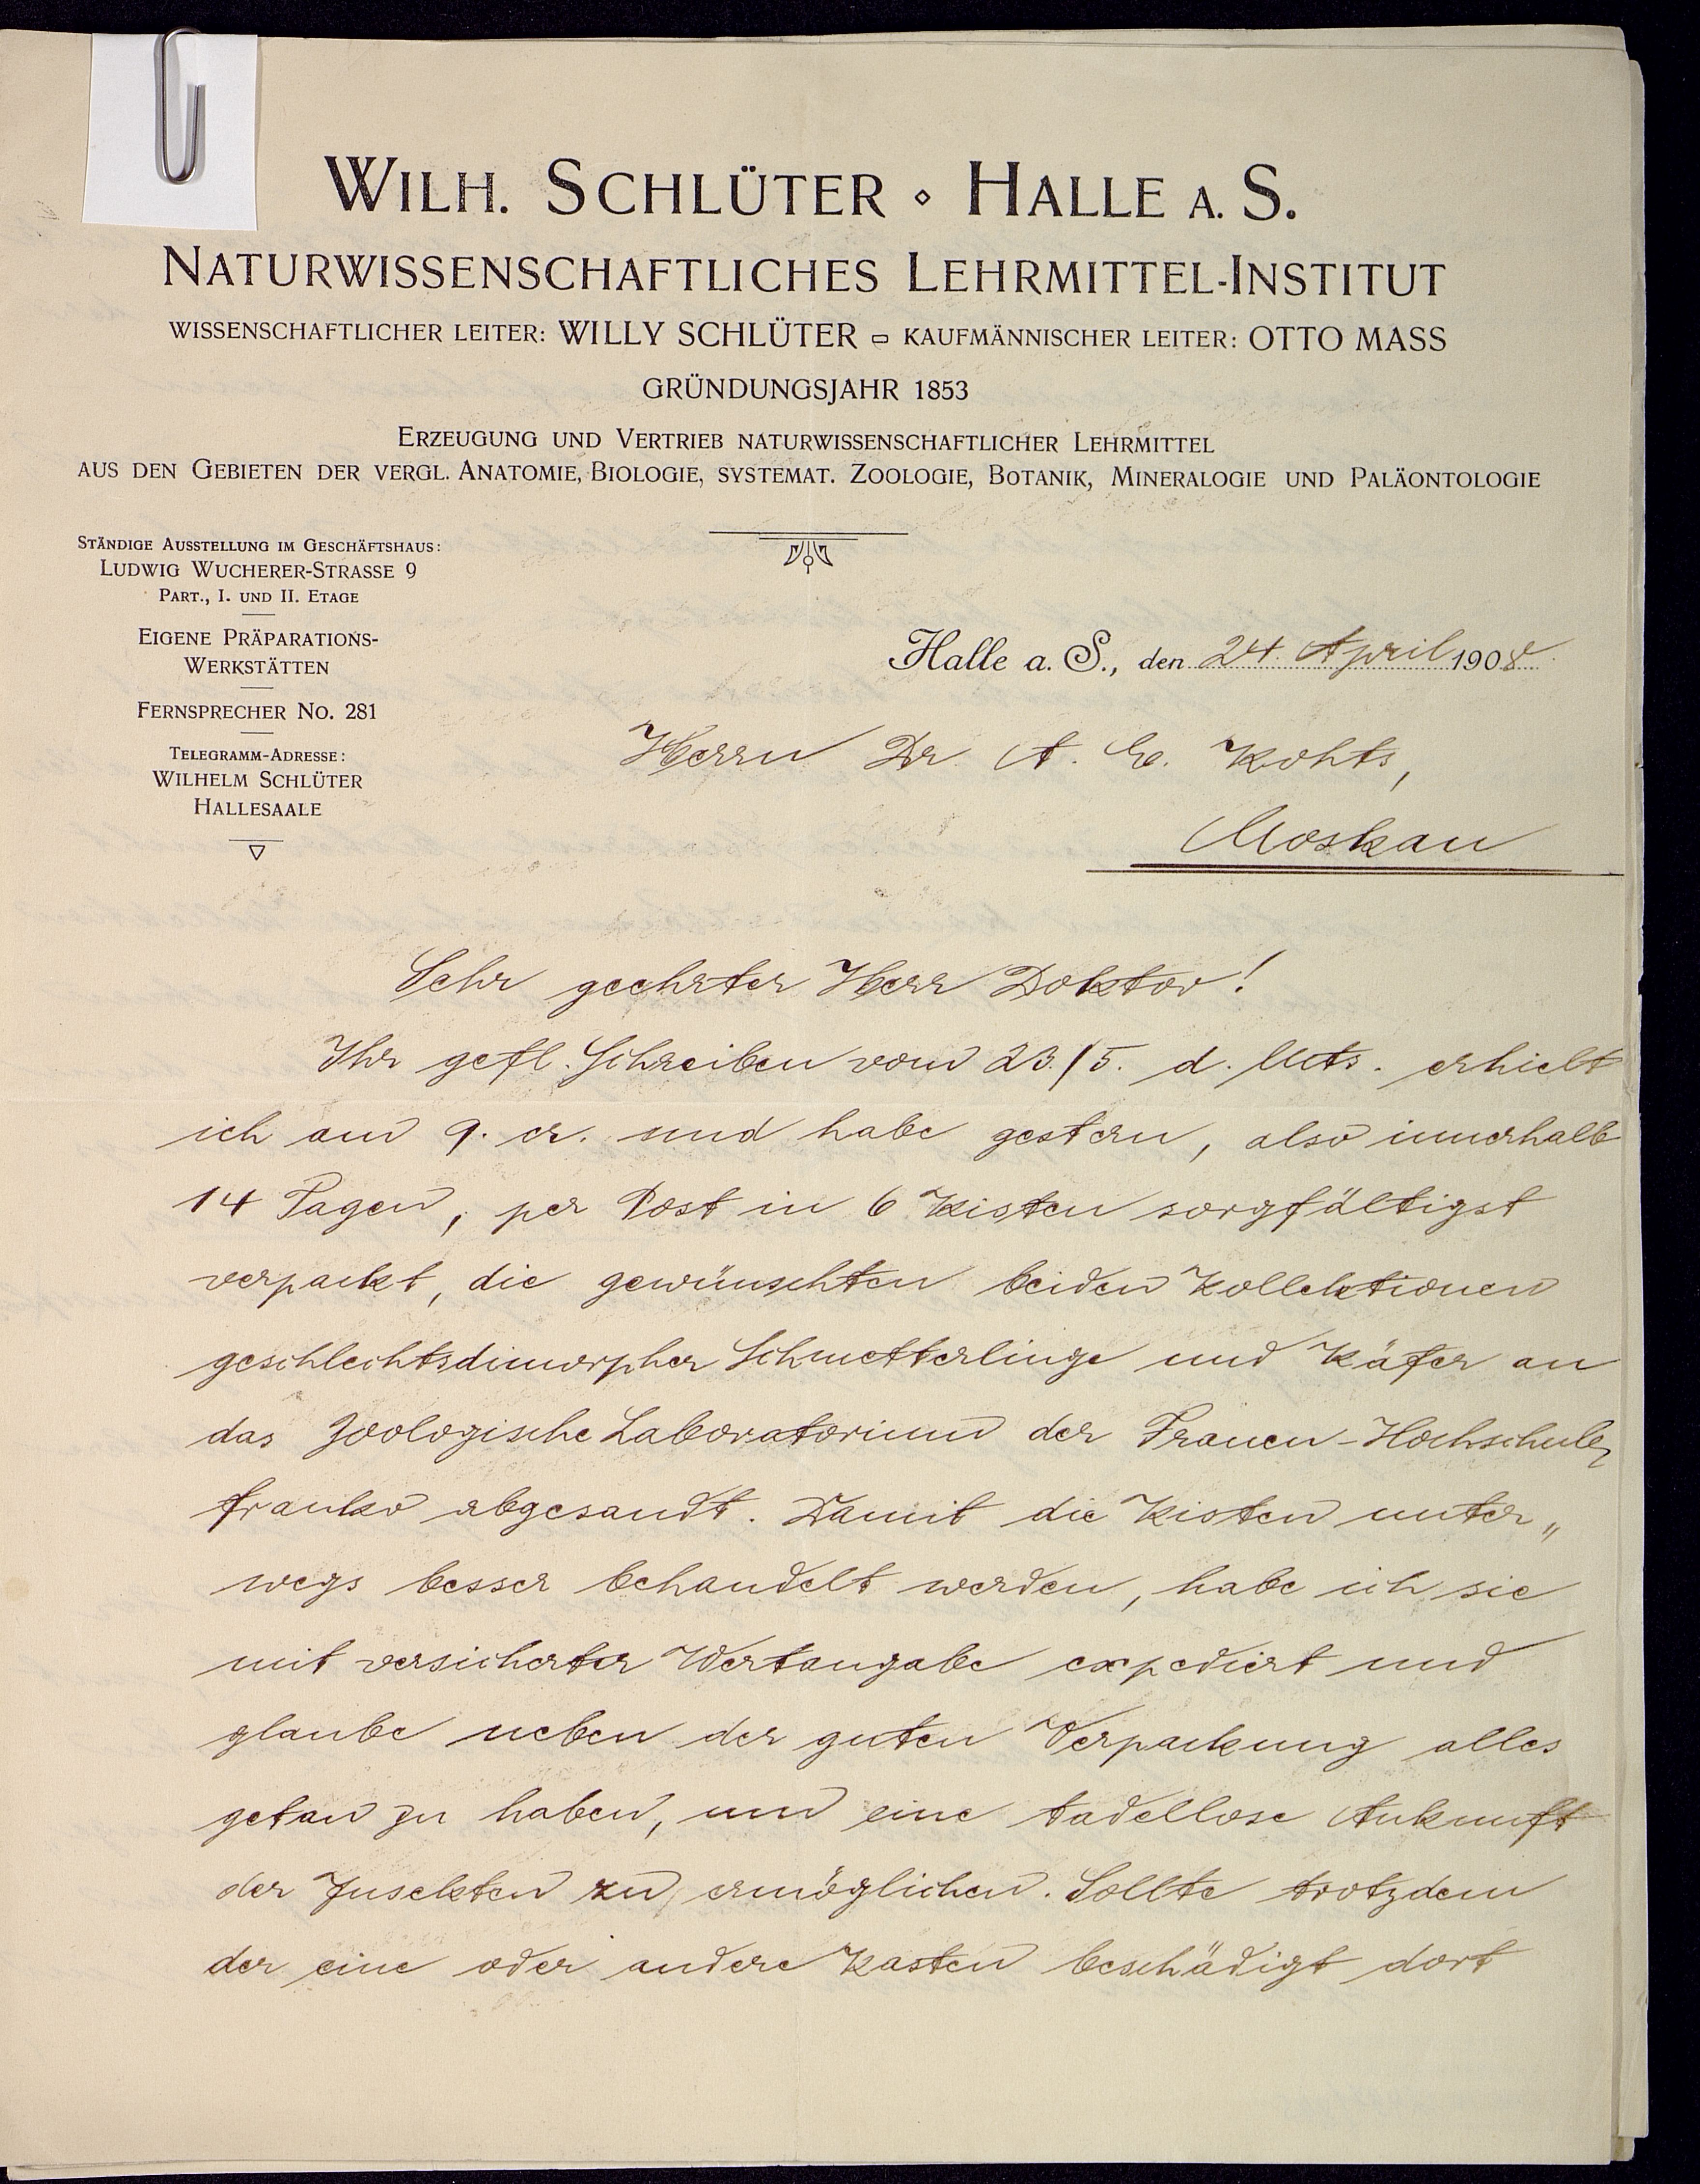 WILH. SCHLÜTER ⋄ HALLE A. S.
NATURWISSENSCHAFTLICHES LEHRMITTEL-INSTITUT
WISSENSCHAFTLICHER LEITER: WILLY SCHLÜTER ▭ KAUFMÄNNISCHER LEITER: OTTO MASS
GRÜNDUNGSJAHR 1853
ERZEUGUNG UND VERTRIEB NATURWISSENSCHAFTLICHER LEHRMITTEL
AUS DEN GEBIETEN DER VERGL. ANATOMIE, BIOLOGIE, SYSTEMAT. ZOOLOGIE, BOTANIK, MINERALOGIE UND PALÄONTOLOGIE
STÄNDIGE AUSSTELLUNG IM GESCHÄFTSHAUS:
LUDWIG WUCHERER-STRASSE 9
PART., I. UND II. ETAGE
EIGENE PRÄPARATIONS-
WERKSTÄTTEN
FERNSPRECHER NO. 281
TELEGRAMM-ADRESSE:
WILHELM SCHLÜTER
HALLESAALE
Halle a. S., den 24. April 1908.
Herrn Dr. A. E. Kohts,
Moskau
Sehr geehrter Herr Doktor!
Ihr gefl. Schreiben vom 23./5. d. Mts. erhielt
ich am 9. cr. und habe gestern, also innerhalb
14 Tagen, per Post in 6 Kisten sorgfältigst
verpackt, die gewünschten beiden Kollektionen
geschlechtsdimorpher Schmetterlinge und Käfer an
das Zoologische Laboratorium der Frauen-Hochschule,
franko abgesandt. Damit die Kisten unter„
wegs besser behandelt werden, habe ich sie
mit versicherter Wertangabe expediert und
glaube neben der guten Verpackung alles
getan zu haben, um eine tadellose Ankunft
der Insekten zu ermöglichen. Sollte trotzdem
der eine oder andere Kasten beschädigt dort